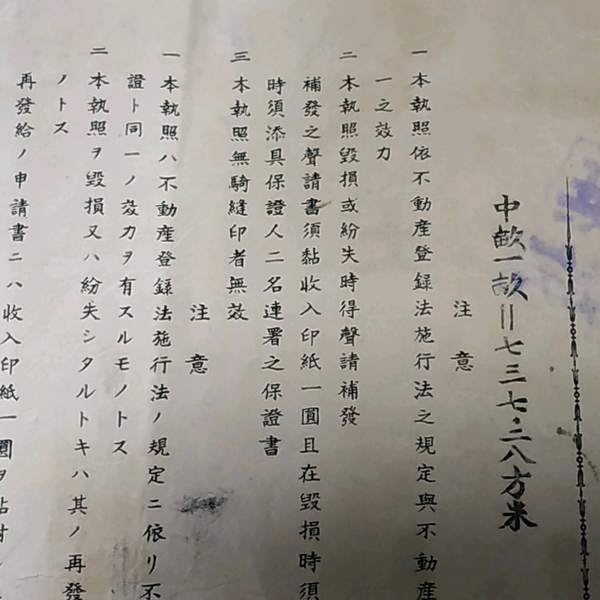 中畝一畝=七三七·二八方米
注意
一本執照依不動產登録法施行法之規定與不動產
一之效力
二本執照毀損或紛失時得聲請補發
補發之聲請書須黏收入印紙一圓且在毀損時須
時須添具保證人二名連署之保證書
三本執照無騎縫印者無效
注意
一本執照ハ不動產登録法施行法ノ規定ニ依リ不
證ト同一ノ效力ヲ有スルモノトス
二本執照ヲ毀損又ハ紛失シタルトキハ其ノ再發
ノトス
再發給ノ申請書ニハ收入印紙一圓ヲ貼付シ